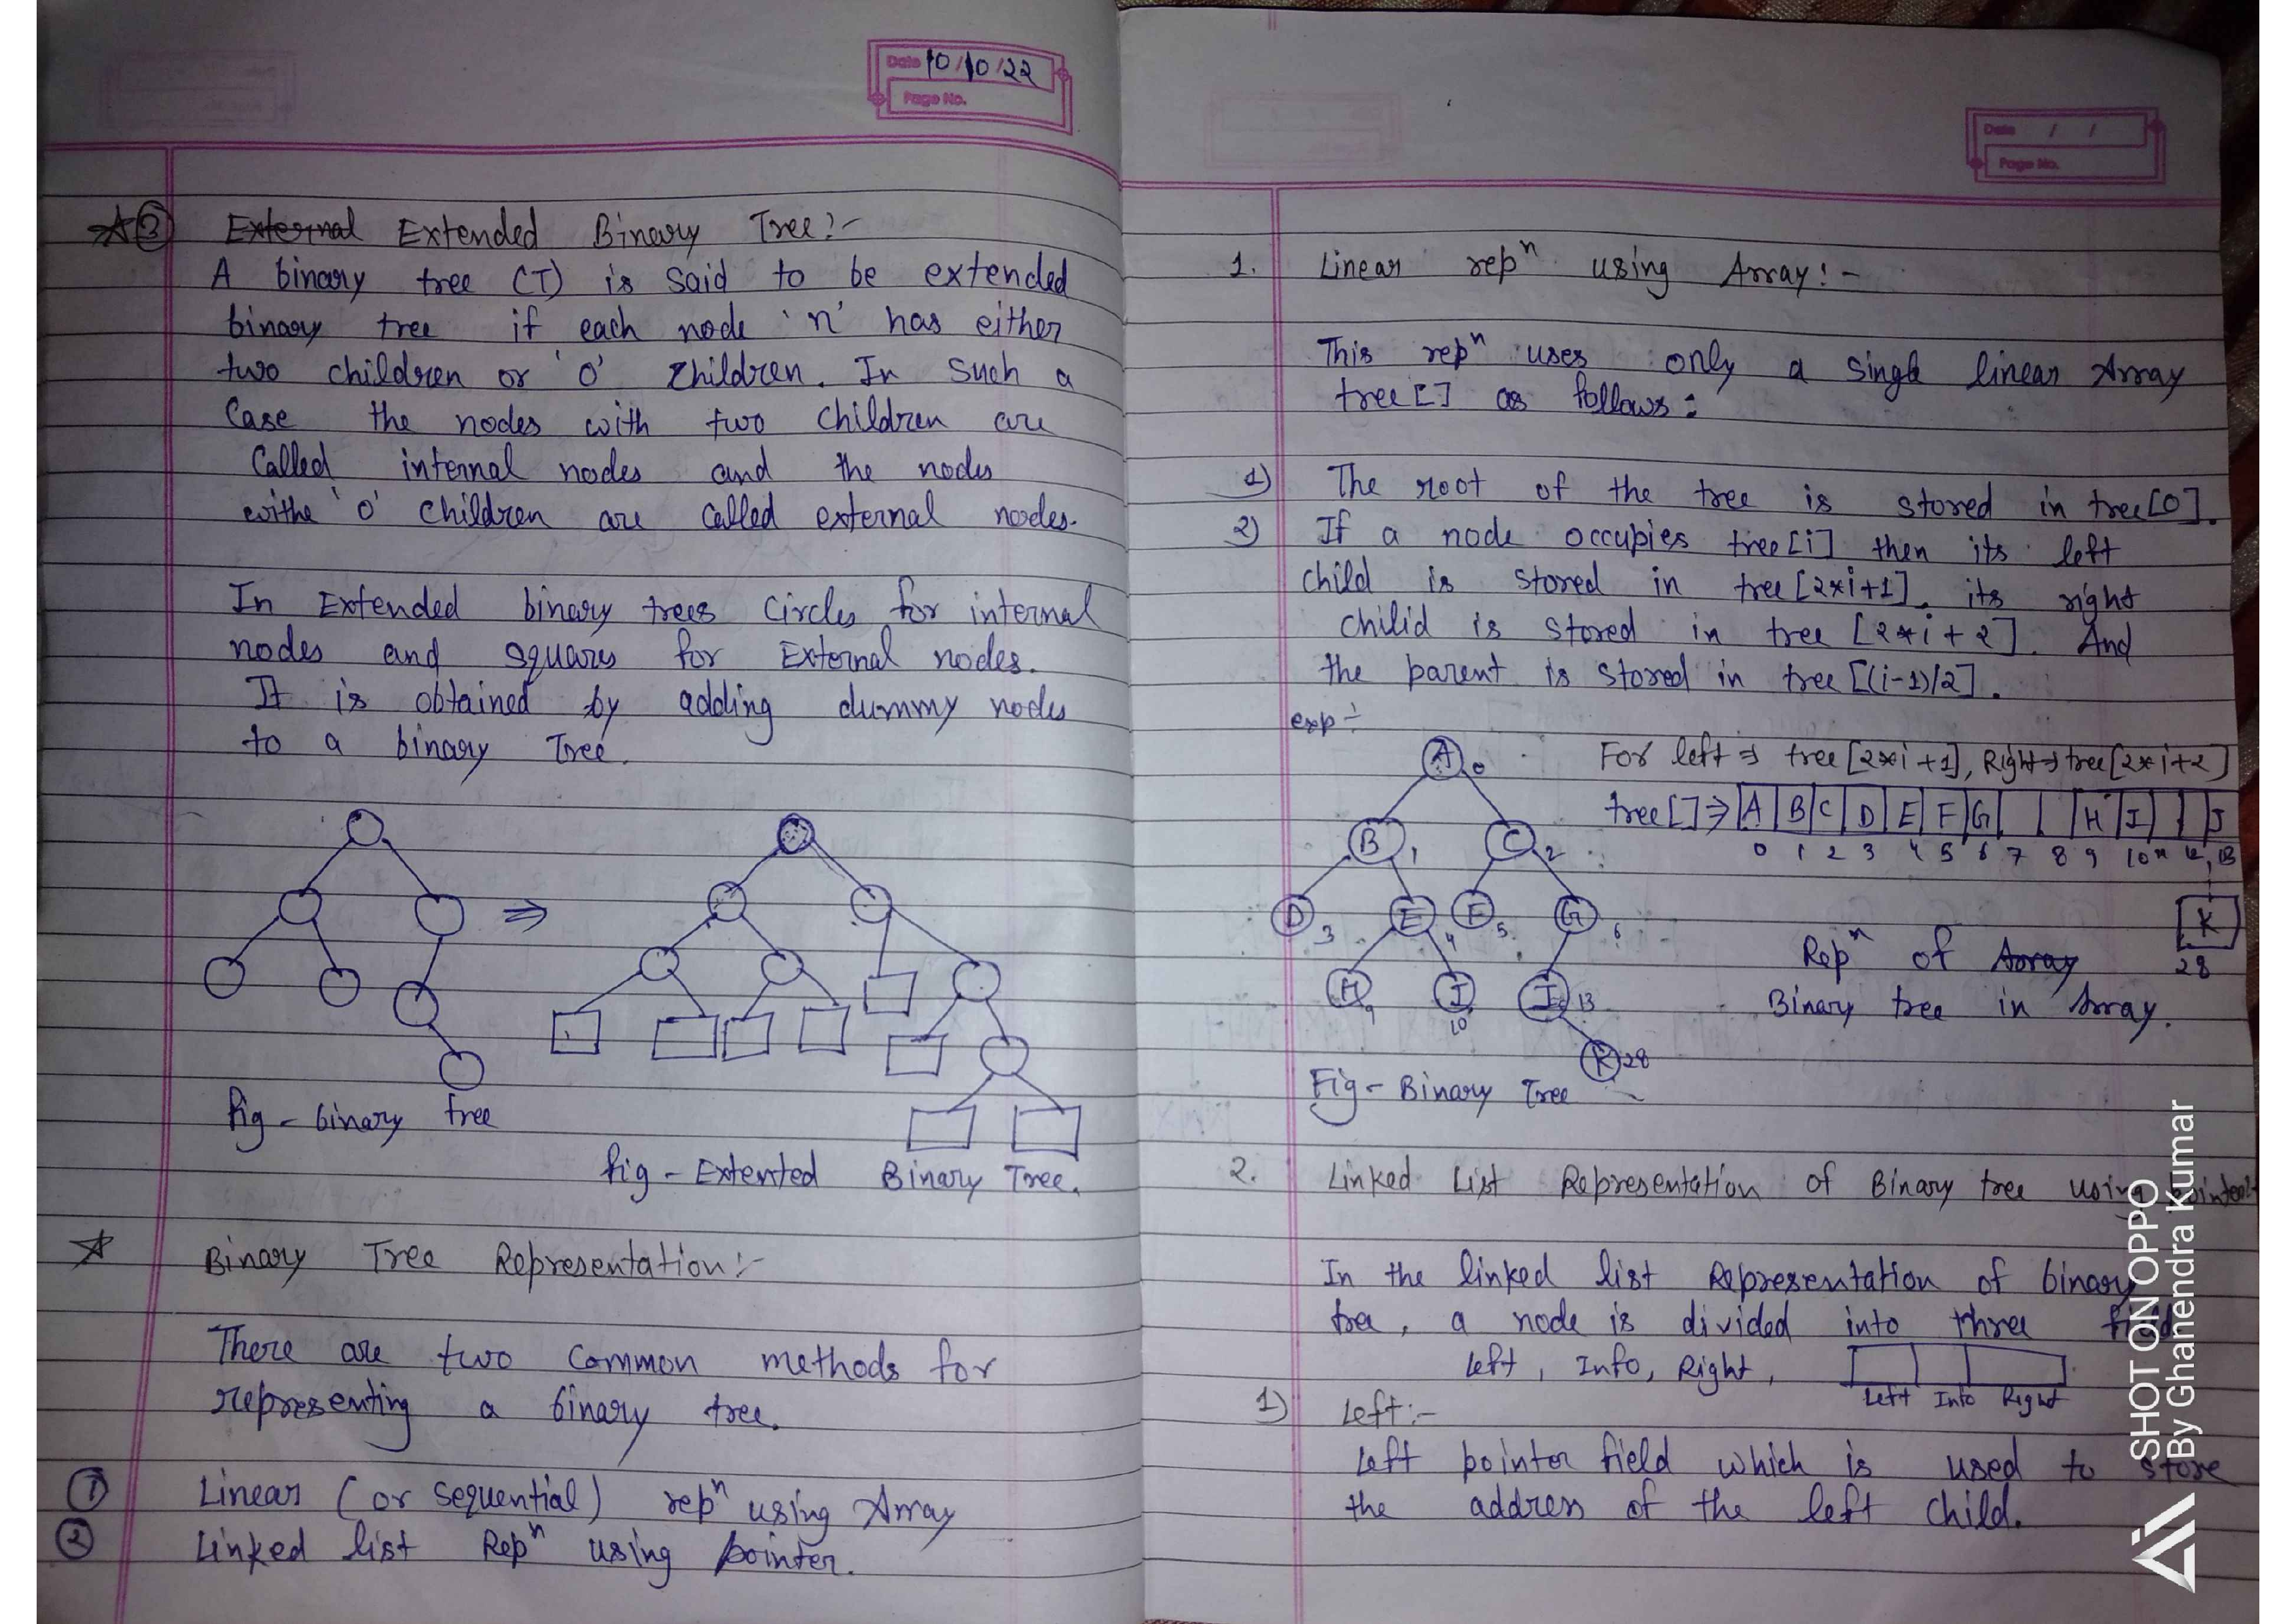 Date 10/10/22
Page No.
③ External Extended Binary Tree:-
A binary tree (T) is said to be extended
binary tree if each node 'n' has either
two children or '0' children. In Such a
Case the nodes with two children are
Called internal nodes and the nodes
withe '0' children are called external nodes.
In Extended binary trees Circles for internal
nodes and squares for External nodes.
It is obtained by adding dummy nodes
to a binary Tree.
fig - binary tree
fig - Extented Binary Tree.
Binary Tree Representation:-
There are two common methods for
representing a binary tree.
① Linear (or sequential) repⁿ using Array
② Linked list Repⁿ using pointer.
Date / /
Page No.
1. Linear repⁿ using Array:-
This repⁿ uses only a single linear Array
tree[] as follows:
1) The root of the tree is stored in tree[0].
2) If a node occupies tree[i] then its left
child is stored in tree[2*i+1]. its right
chilid is stored in tree [2*i+2]. And
the parent is stored in tree [(i-1)/2].
exp÷
For left ⇒ tree[2*i+1], Right ⇒ tree[2*i+2]
tree[] ⇒ A B C D E F G H I J
0 1 2 3 4 5 6 7 8 9 10 11 12 13
K
28
A 0
B 1 C 2
D 3 E 4 F 5 G 6
H 9 I 10 J 13
K 28
Repⁿ of Array
Binary tree in Array.
Fig - Binary Tree
2. Linked List Representation of Binary tree using pointer:-
In the linked list Representation of binary
tree, a node is divided into three field
left, Info, Right,
Left Info Right
1) Left:-
Left pointer field which is used to store
the address of the left child.
SHOT ON OPPO
By Ghanendra Kumar